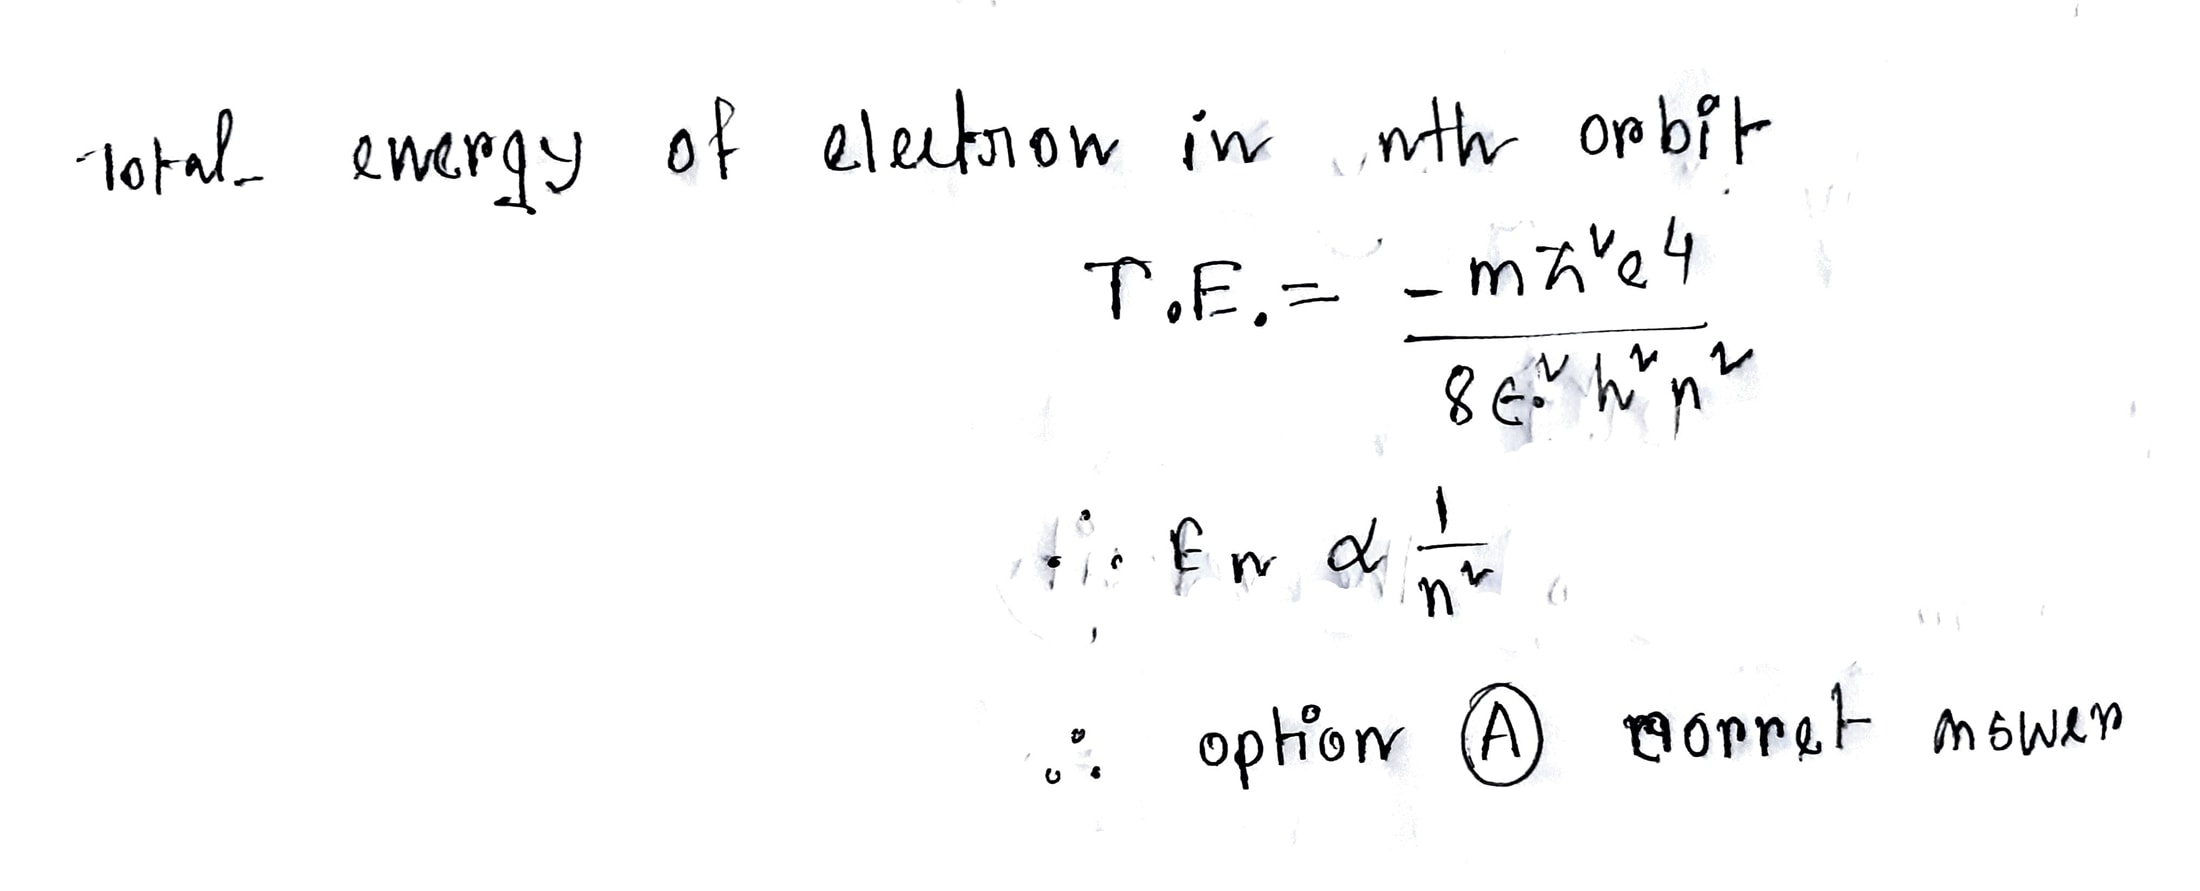 Total energy of electron in nth orbit
T.E. = - m z² e 4 / 8 ϵ₀² h² n²
∴ En ∝ 1 / n²
∴ option Ⓐ corret answer